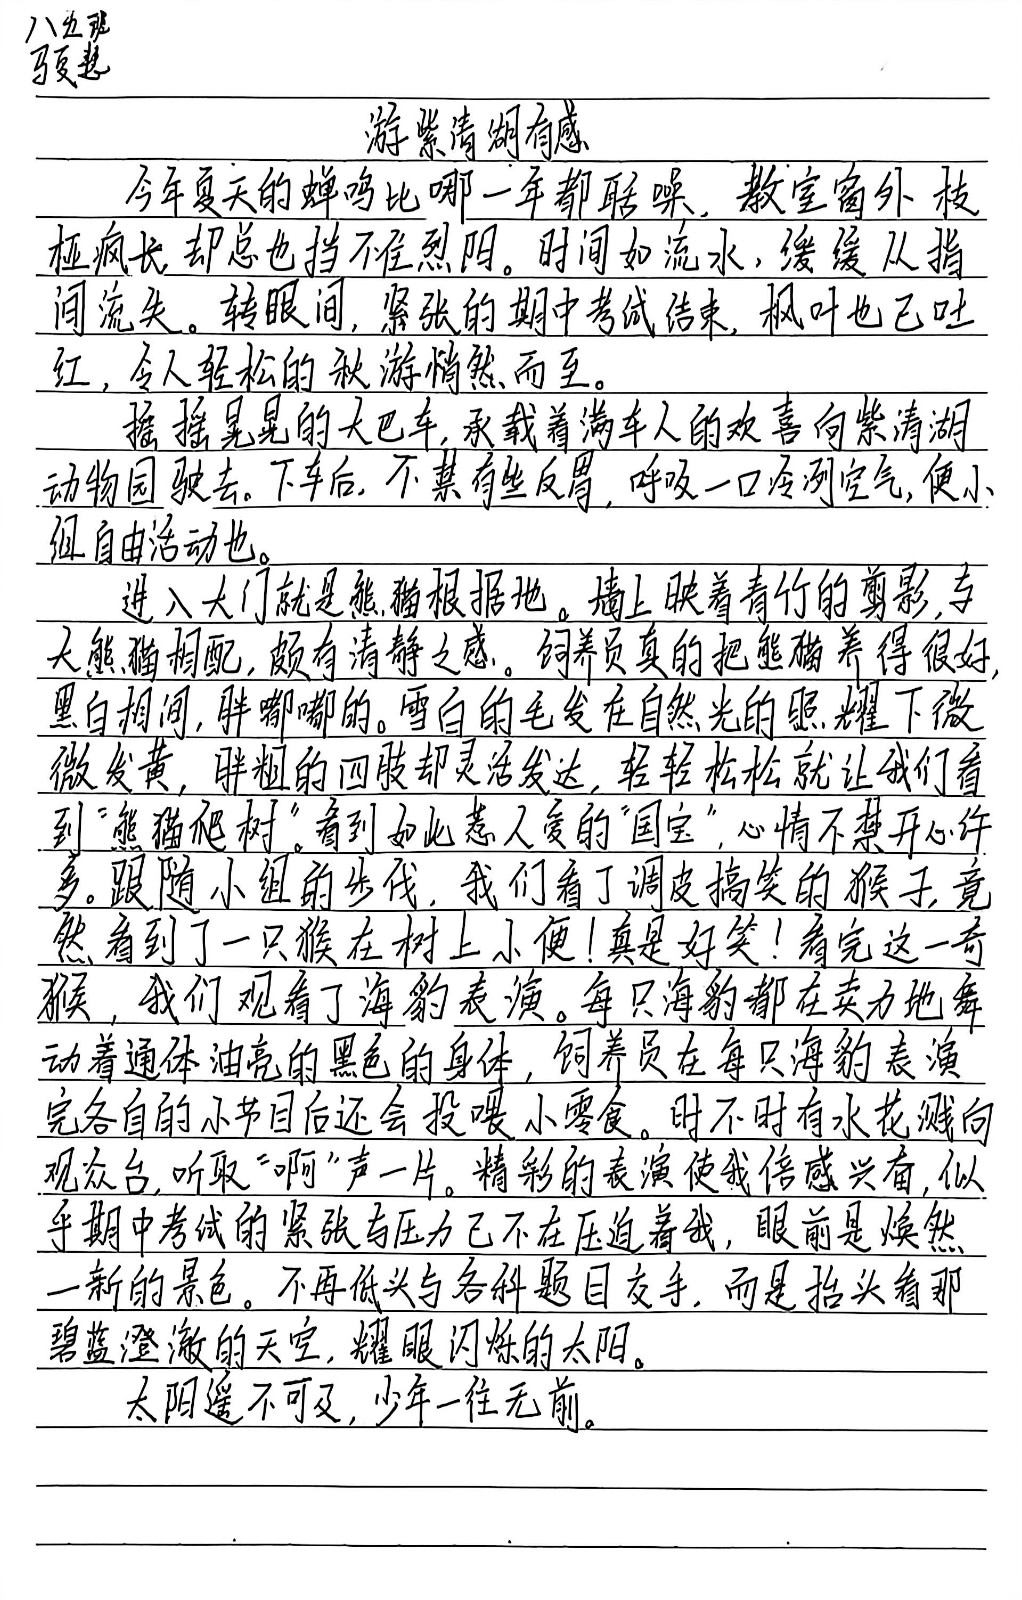 八五班
马夏慧
游紫清湖有感
今年夏天的蝉鸣比哪一年都聒噪，教室窗外枝
桠疯长，却总也挡不住烈阳。时间如流水，缓缓从指
间流失。转眼间，紧张的期中考试结束，枫叶也已吐
红，令人轻松的秋游悄然而至。
摇摇晃晃的大巴车，承载着满车人的欢喜向紫清湖
动物园驶去。下车后，不禁有些反胃，呼吸一口冷冽空气，便小
组自由活动也。
进入大门就是熊猫根据地。墙上映着青竹的剪影，与
大熊猫相配，颇有清静之感。饲养员真的把熊猫养得很好，
黑白相间，胖嘟嘟的。雪白的毛发在自然光的照耀下微
微发黄，胖粗的四肢却灵活发达，轻轻松松就让我们看
到“熊猫爬树”。看到如此惹人爱的“国宝”，心情不禁开心许
多。跟随小组的步伐，我们看了调皮搞笑的猴子，竟
然看到了一只猴在树上小便！真是好笑！看完这一奇
猴，我们观看了海豹表演。每只海豹都在卖力地舞
动着通体油亮的黑色的身体，饲养员在每只海豹表演
完各自的小节目后还会投喂小零食。时不时有水花溅向
观众台，听取“啊”声一片。精彩的表演使我倍感兴奋，似
乎期中考试的紧张与压力已不在压迫着我，眼前是焕然
一新的景色。不再低头与各科题目交手，而是抬头看那
碧蓝澄澈的天空，耀眼闪烁的太阳。
太阳遥不可及，少年一往无前。